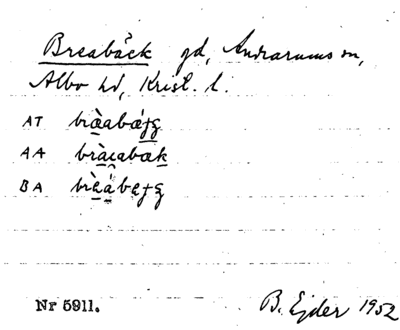 Breabäck gd, Andrarums sn,
Albo hd, Krist. l.
AT
AA
BA
Nr 5911. B. Ejder 1952